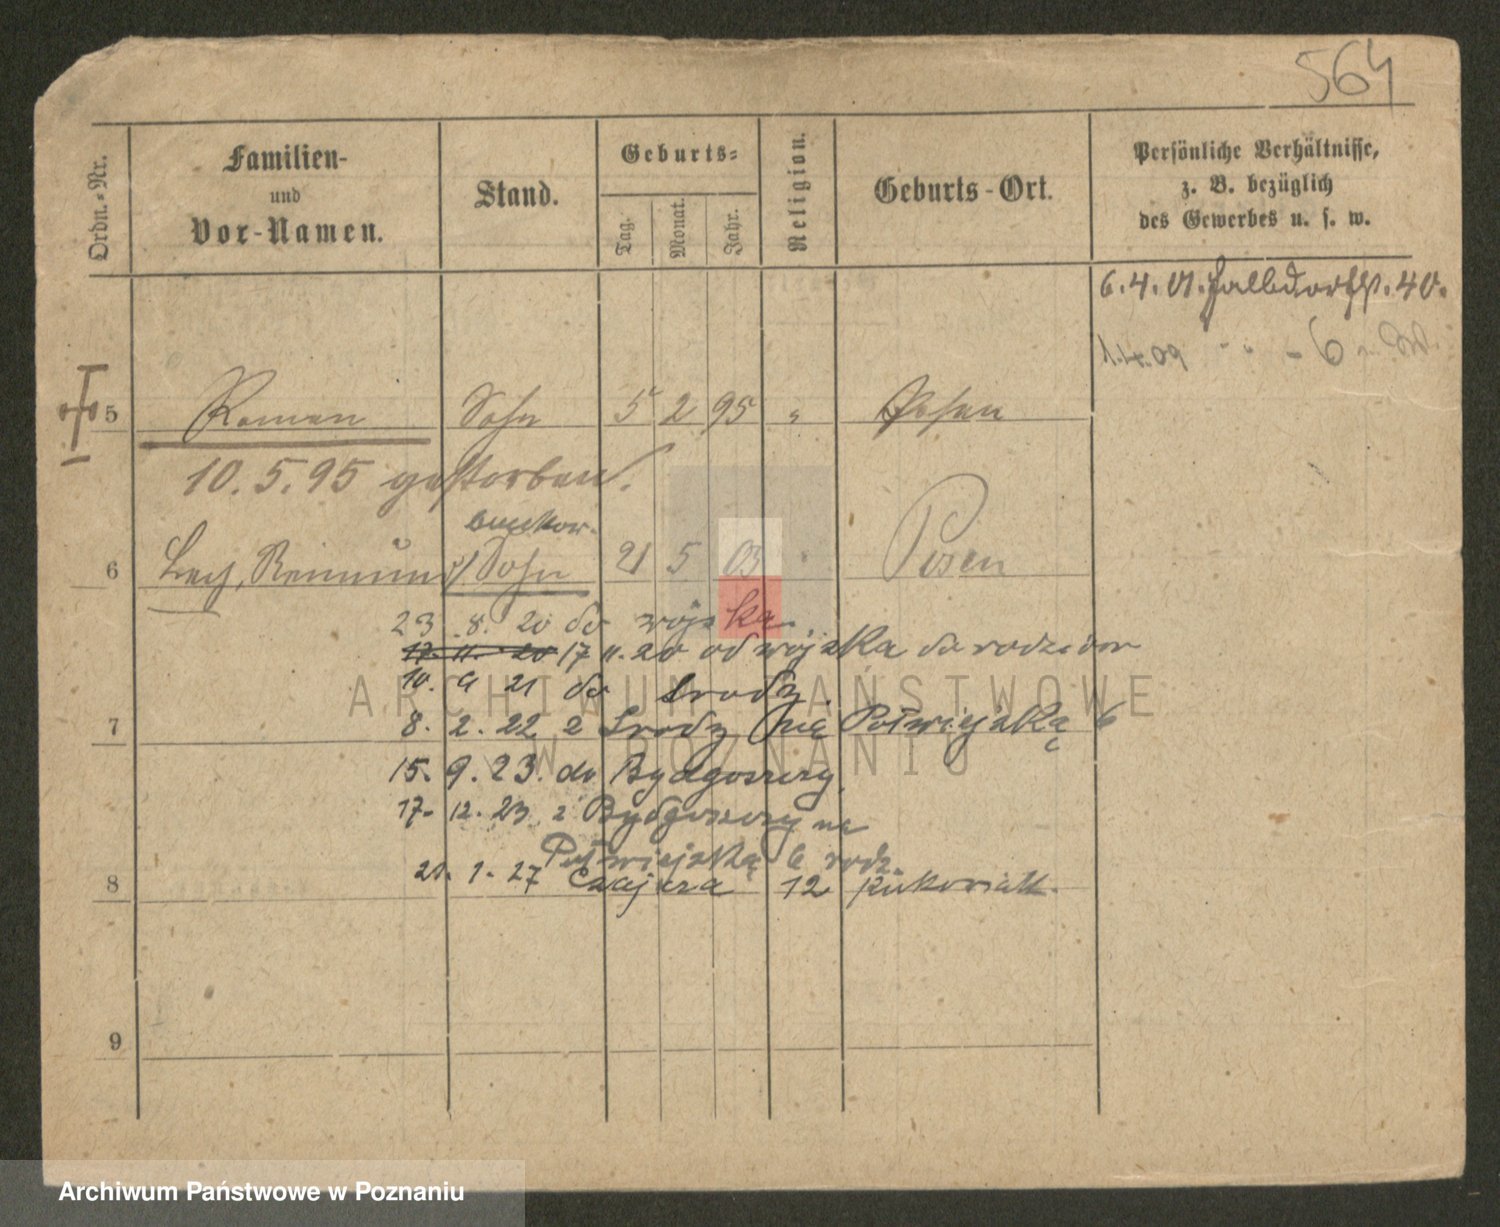 564
Ordn.-Nr.
Familien-
und
Vor-Namen.
Stand.
Geburts-
Tag.
Monat.
Jahr.
Religion.
Geburts-Ort.
Persönliche Verhältnisse,
z. B. bezüglich
des Gewerbes u. s. w.
6.4.01. Halbdorfstr. 40.
1.4.09 " " - 6
5 Roman Sohn 5 2 95 " Posen
10.5.95 gestorben.
6 Lech, Sohn 21 5 03 " Posen
23. 8. 20 do wojska.
17. 11. 20 17 11. 20 od wojska do rodziców
10. 9 21 do Środy.
7 8. 2. 22 z Środy na Półwiejską 6
15. 9. 23. do Bydgoszczy
17. 12. 23 z Bydgoszczy na
Półwiejską 6 rodz.
8 21. 1. 27 Czajcza 12
9
ARCHIWUM PAŃSTWOWE
W POZNANIU
Archiwum Państwowe w Poznaniu